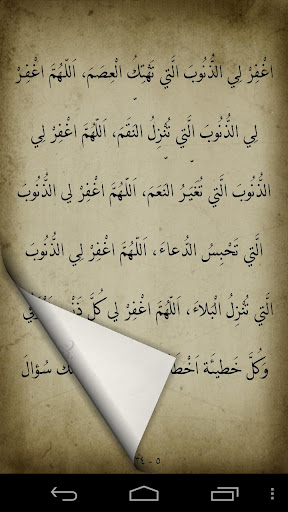 اغْفِرْ لِي الذُّنُوبَ الَّتي تَهْتِكُ الْعِصَمَ، اَللّهُمَّ اغْفِرْ
لِي الذُّنُوبَ الَّتي تُنْزِلُ النِّقَمَ، اَللّهُمَّ اغْفِرْ لِي
الذُّنُوبَ الَّتي تُغَيِّرُ النِّعَمَ، اَللّهُمَّ اغْفِرْ لي الذُّنُوبَ
الَّتي تَحْبِسُ الدُّعاءَ، اَللّهُمَّ اغْفِرْ لِيَ الذُّنُوبَ
الَّتي تُنْزِلُ الْبَلاءَ، اَللّهُمَّ اغْفِرْ لي كُلَّ
وَكُلَّ خَطيئَة سُؤالَ
٥ - ٢٤